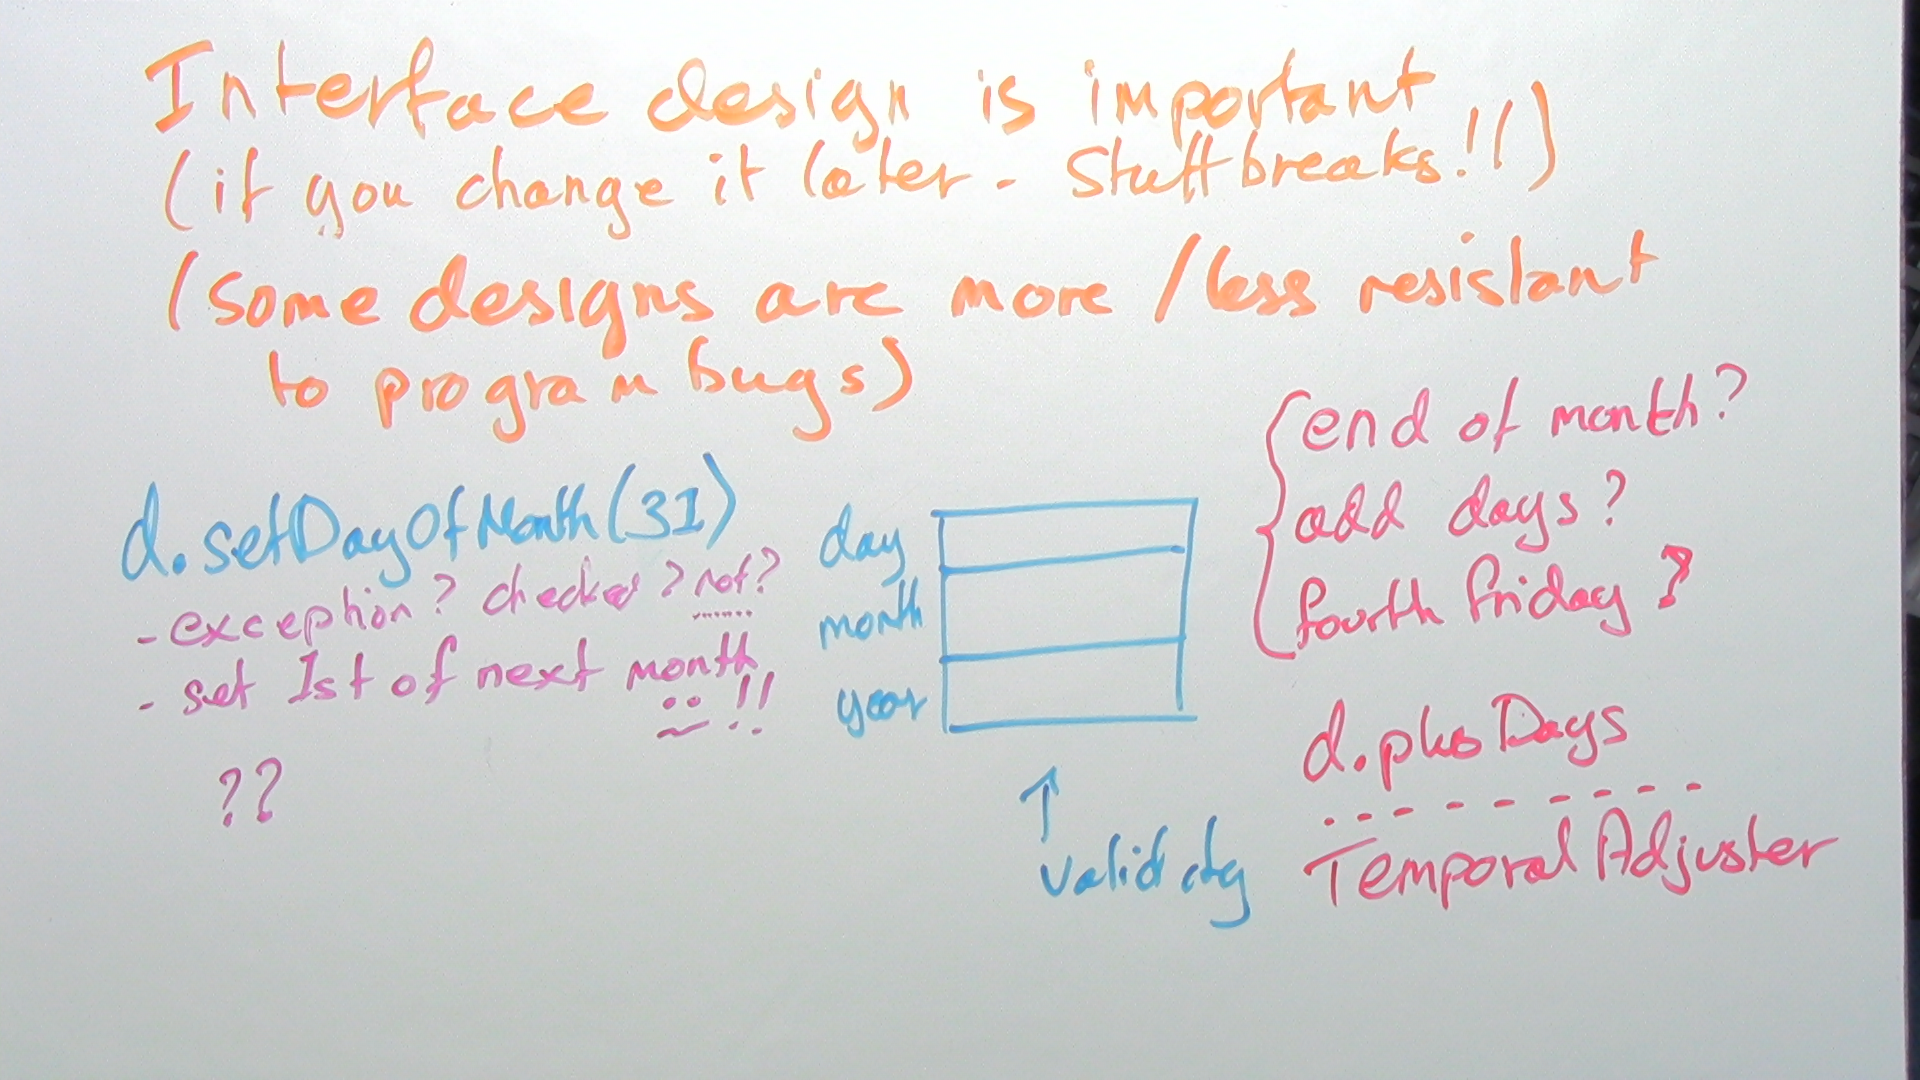 Interface design is important
(if you change it later - Stuff breaks!!)
(some designs are more / less resistant
to program bugs)
d.setDayOfMonth(31)
- exception? checked? not?
- set 1st of next month
!!
??
day
month
year
↑
valid
end of month?
add days?
fourth friday?
d.plusDays
TemporalAdjuster